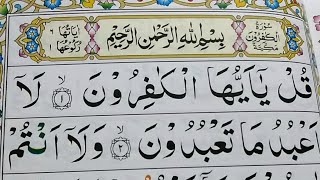 سُوْرَةُ الْكٰفِرُوْنَ مَكِّيَّةٌ
بِسْمِ اللهِ الرَّحْمٰنِ الرَّحِيْمِ
اٰيَاتُهَا ٦ رُكُوْعُهَا ١
قُلْ يٰۤاَيُّهَا الْكٰفِرُوْنَ ۙ﴿۱﴾ لَاۤ
اَعْبُدُ مَا تَعْبُدُوْنَ ۙ﴿۲﴾ وَلَاۤ اَنْتُمْ